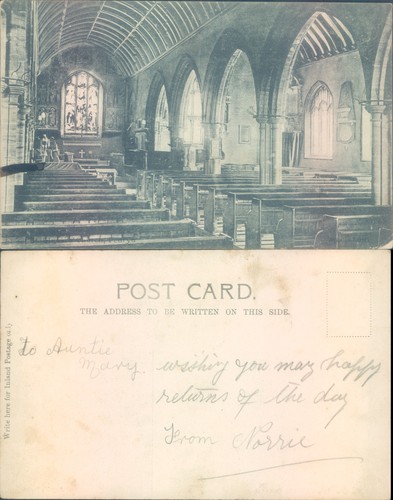 POST CARD.
THE ADDRESS TO BE WRITTEN ON THIS SIDE.
Write here for Inland Postage only
to Auntie
Mary
wishing you may happy
returns of the day
From Norrie